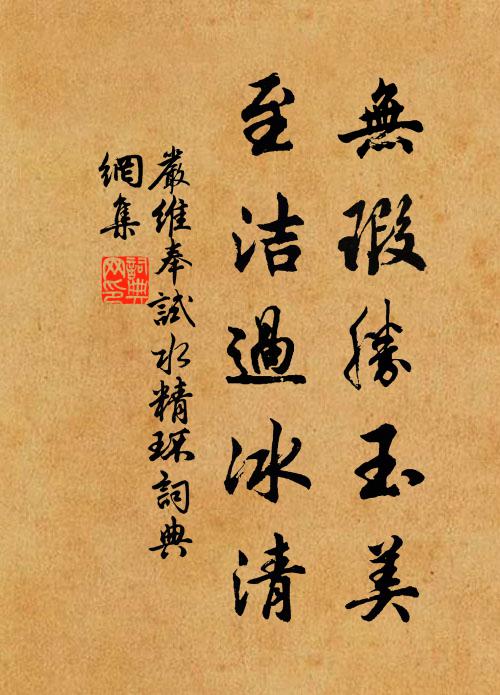 無瑕勝玉美
至洁過冰清
嚴維奉試水精環詞典
網集
詞典
网印